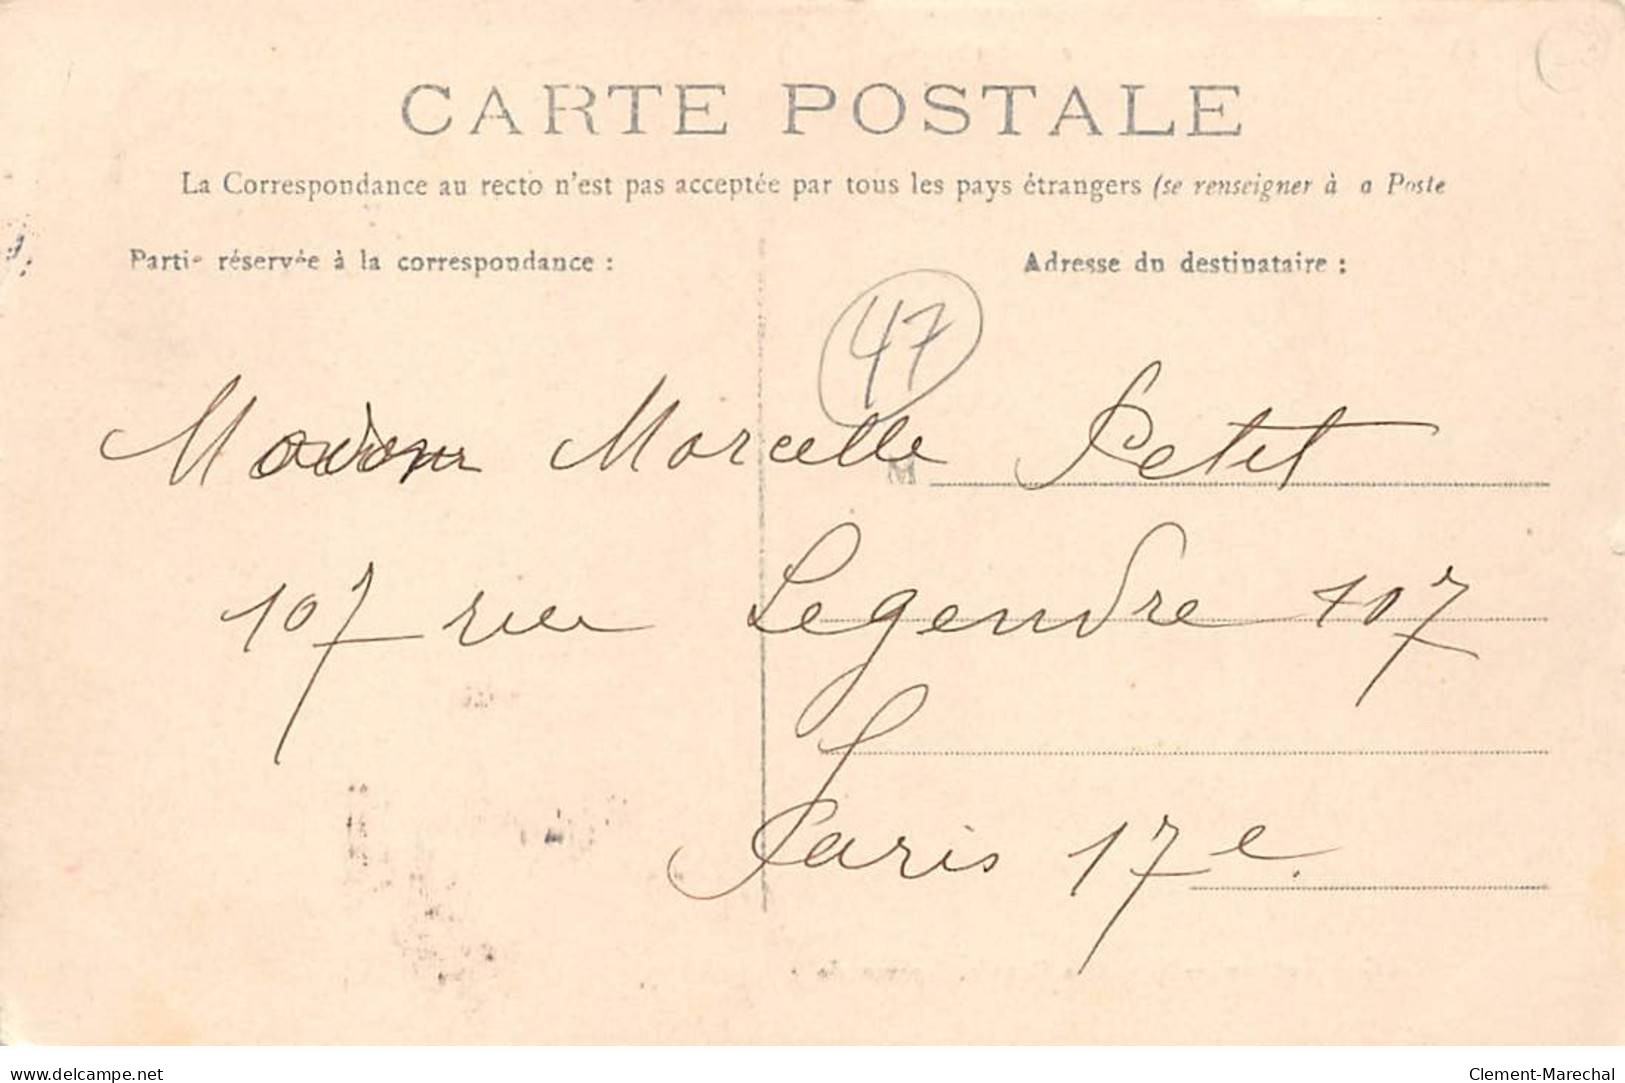 CARTE POSTALE
La Correspondance au recto n'est pas acceptée par tous les pays étrangers (se renseigner à a Poste
Partie réservée à la correspondance :
Adresse du destinataire :
47
Marcelle Petit
M
107 rue Legendre 107
Paris 17e.
www.delcampe.net
Clement-Marechal